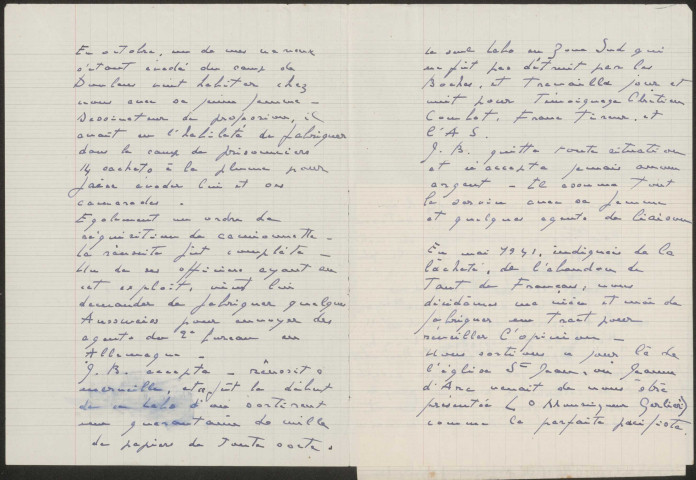 En octobre, un de mes neveux
s'étant évadé du camp de
Doullens vint habiter chez
nous avec sa jeune femme -
Dessinateur de profession, il
avait eu l'habileté de fabriquer
dans le camp de prisonniers
14 cachets à la plume pour
faire évader lui et ses
camarades.
Également un ordre de
réquisition de camionnette -
La réussite fut complète -
Un de ses officiers ayant su
cet exploit, vint lui
demander de fabriquer quelques
Ausweiss pour envoyer des
agents du 2e bureau en
Allemagne -
J. B. accepta - réussit à
merveille, et ce fut le début
de ce labo d'où sortirent
une quarantaine de mille
de papiers de toute sorte.
Le seul labo en Zone Sud qui
ne fut pas détruit par les
Boches, et travailla jour et
nuit pour Témoignage Chrétien
Combat, Franc Tireur, et
l'A S.
J. B. quitta toute situation
et n'accepta jamais aucun
argent - Il assuma tout
le service avec sa femme
et quelques agents de liaison
En mai 1941, indignées de la
lâcheté, de l'abandon de
tant de Français, nous
décidâmes ma nièce et moi de
fabriquer un tract pour
réveiller l'opinion -
Nous sortions ce jour là de
l'église St Jean, où Jeanne
d'Arc venait de nous être
présentée (o Monseigneur Gerlier)
comme la parfaite pacifiste.